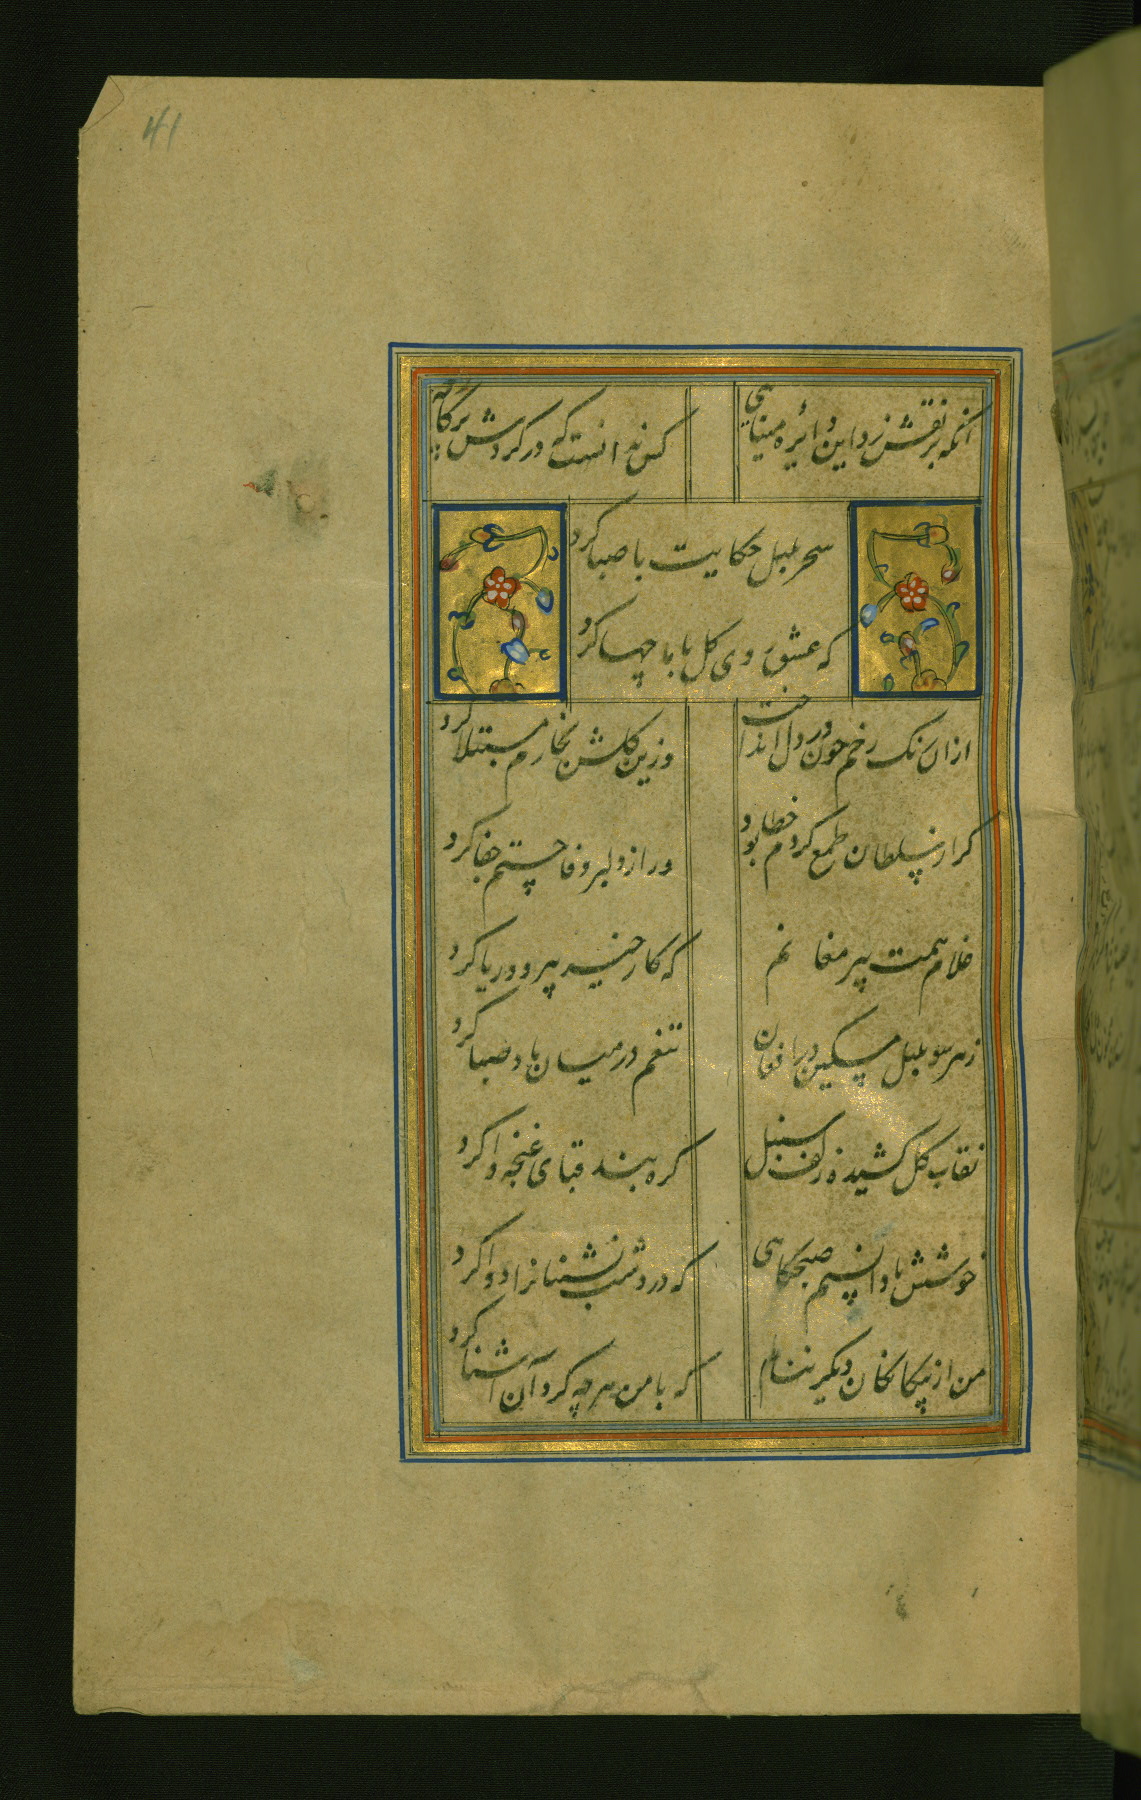 41
آنکه بر نقش زد این دائره مینایی
کس ندانست که در گردش پرگار چه کرد
سحر بلبل حکایت با صبا کرد
که عشق روی گل با ما چها کرد
ازان رنگ رخم خون در دل انداخت
وزین گلشن بخارم مبتلا کرد
گر از سلطان طمع کردم خطا بود
ور از دلبر وفا جستم جفا کرد
غلام همت پیر مغانم
که کار خیر بی روی و ریا کرد
ز هر سو بلبل مسکین در افغان
تنعم در میان باد صبا کرد
نقاب گل کشید و زلف سنبل
گره بند قبای غنچه وا کرد
خوشش باد آن نسیم صبحگاهی
که درد شب نشینانرا دوا کرد
من از بیگانگان دیگر ننالم
که با من هرچه کرد آن آشنا کرد